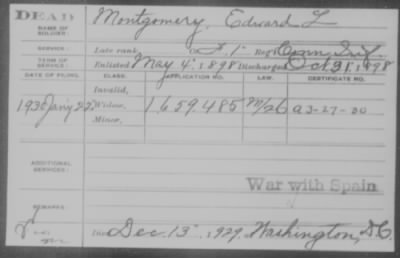 DEAD
NAME OF SOLDIER: Montgomery, Edward L
SERVICE: Late rank, Co. I, Reg't Conn Inf.
TERM OF SERVICE: Enlisted May 4, 1898 Discharged Oct 31, 1898
DATE OF FILING. CLASS. APPLICATION NO. LAW. CERTIFICATE NO.
Invalid,
1930 Jan'y 22. Widow, 1659.485 M/26 a3-27-30
Minor,
ADDITIONAL SERVICES:
War with Spain
REMARKS:
Died Dec. 13, 1929, Washington, D.C.